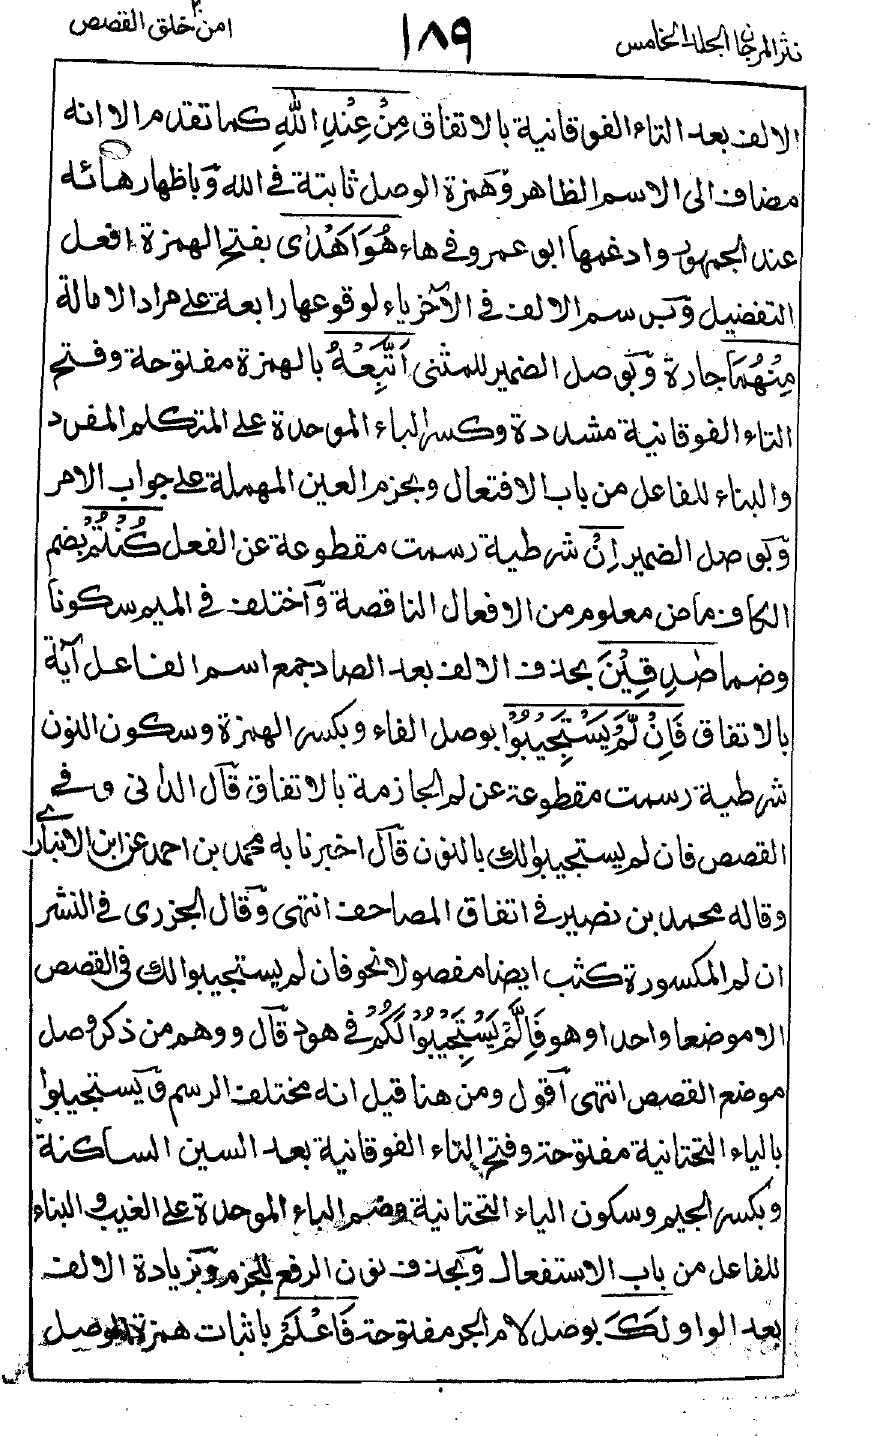 نثر المرجان الجلد الخامس
١٨٩
امن خلق ٢٠ القصص
الالف بعد التاء الفوقانية بالاتفاق مِنْ عِنْدِ اللّٰهِ كما تقدم الا انه
مضاف الى الاسم الظاهر وهمزة الوصل ثابتة في الله وباظهار هائه
عند الجمهور وادغمها ابو عمرو في هاء هُوَ اَهْدٰى بفتح الهمزة افعل
التفضيل وبرسم الالف في الآخر ياء لوقوعها رابعة على مراد الامالة
مِنْهُمَا جارة وبوصل الضمير للمثنى اَتَّبِعْهُ بالهمزة مفتوحة وفتح
التاء الفوقانية مشددة وكسر الباء الموحدة على المتكلم المفرد
والبناء للفاعل من باب الافتعال وبجزم العين المهملة على جواب الامر
وبوصل الضمير اِنْ شرطية رسمت مقطوعة عن الفعل كُنْتُمْ بضم
الكاف ماض معلوم من الافعال الناقصة واختلف في الميم سكونا
وضما صٰدِقِيْنَ بحذف الالف بعد الصاد جمع اسم الفاعل آية
بالاتفاق فَاِنْ لَّمْ يَسْتَجِيْبُوْا بوصل الفاء وبكسر الهمزة وسكون النون
شرطية رسمت مقطوعة عن لم الجازمة بالاتفاق قال الدانى وفي
القصص فان لم يستجيبوا لك بالنون قال اخبرنا به محمد بن احمد عن ابن الانبارے
وقاله محمد بن نصير في اتفاق المصاحف انتهى وقال الجزرى في النشر
ان لم المكسورة كتب ايضا مفصولا نحو فان لم يستجيبوا لك في القصص
الا موضعا واحدا وهو فَاِلَّمْ يَسْتَجِيْبُوْا لَكُمْ في هود قال ووهم من ذكر وصل
موضع القصص انتهى اقول ومن هنا قيل انه مختلف الرسم ويستجيبوا
بالياء التحتانية مفتوحة وفتح التاء الفوقانية بعد السين الساكنة
وبكسر الجيم وسكون الياء التحتانية وضم الباء الموحدة على الغيب والبناء
للفاعل من باب الاستفعال وبحذف نون الرفع للجزم وبزيادة الالف
بعد الواو لَكَ بوصل لام الجر مفتوحة فَاعْلَمْ باثبات همزة الوصل